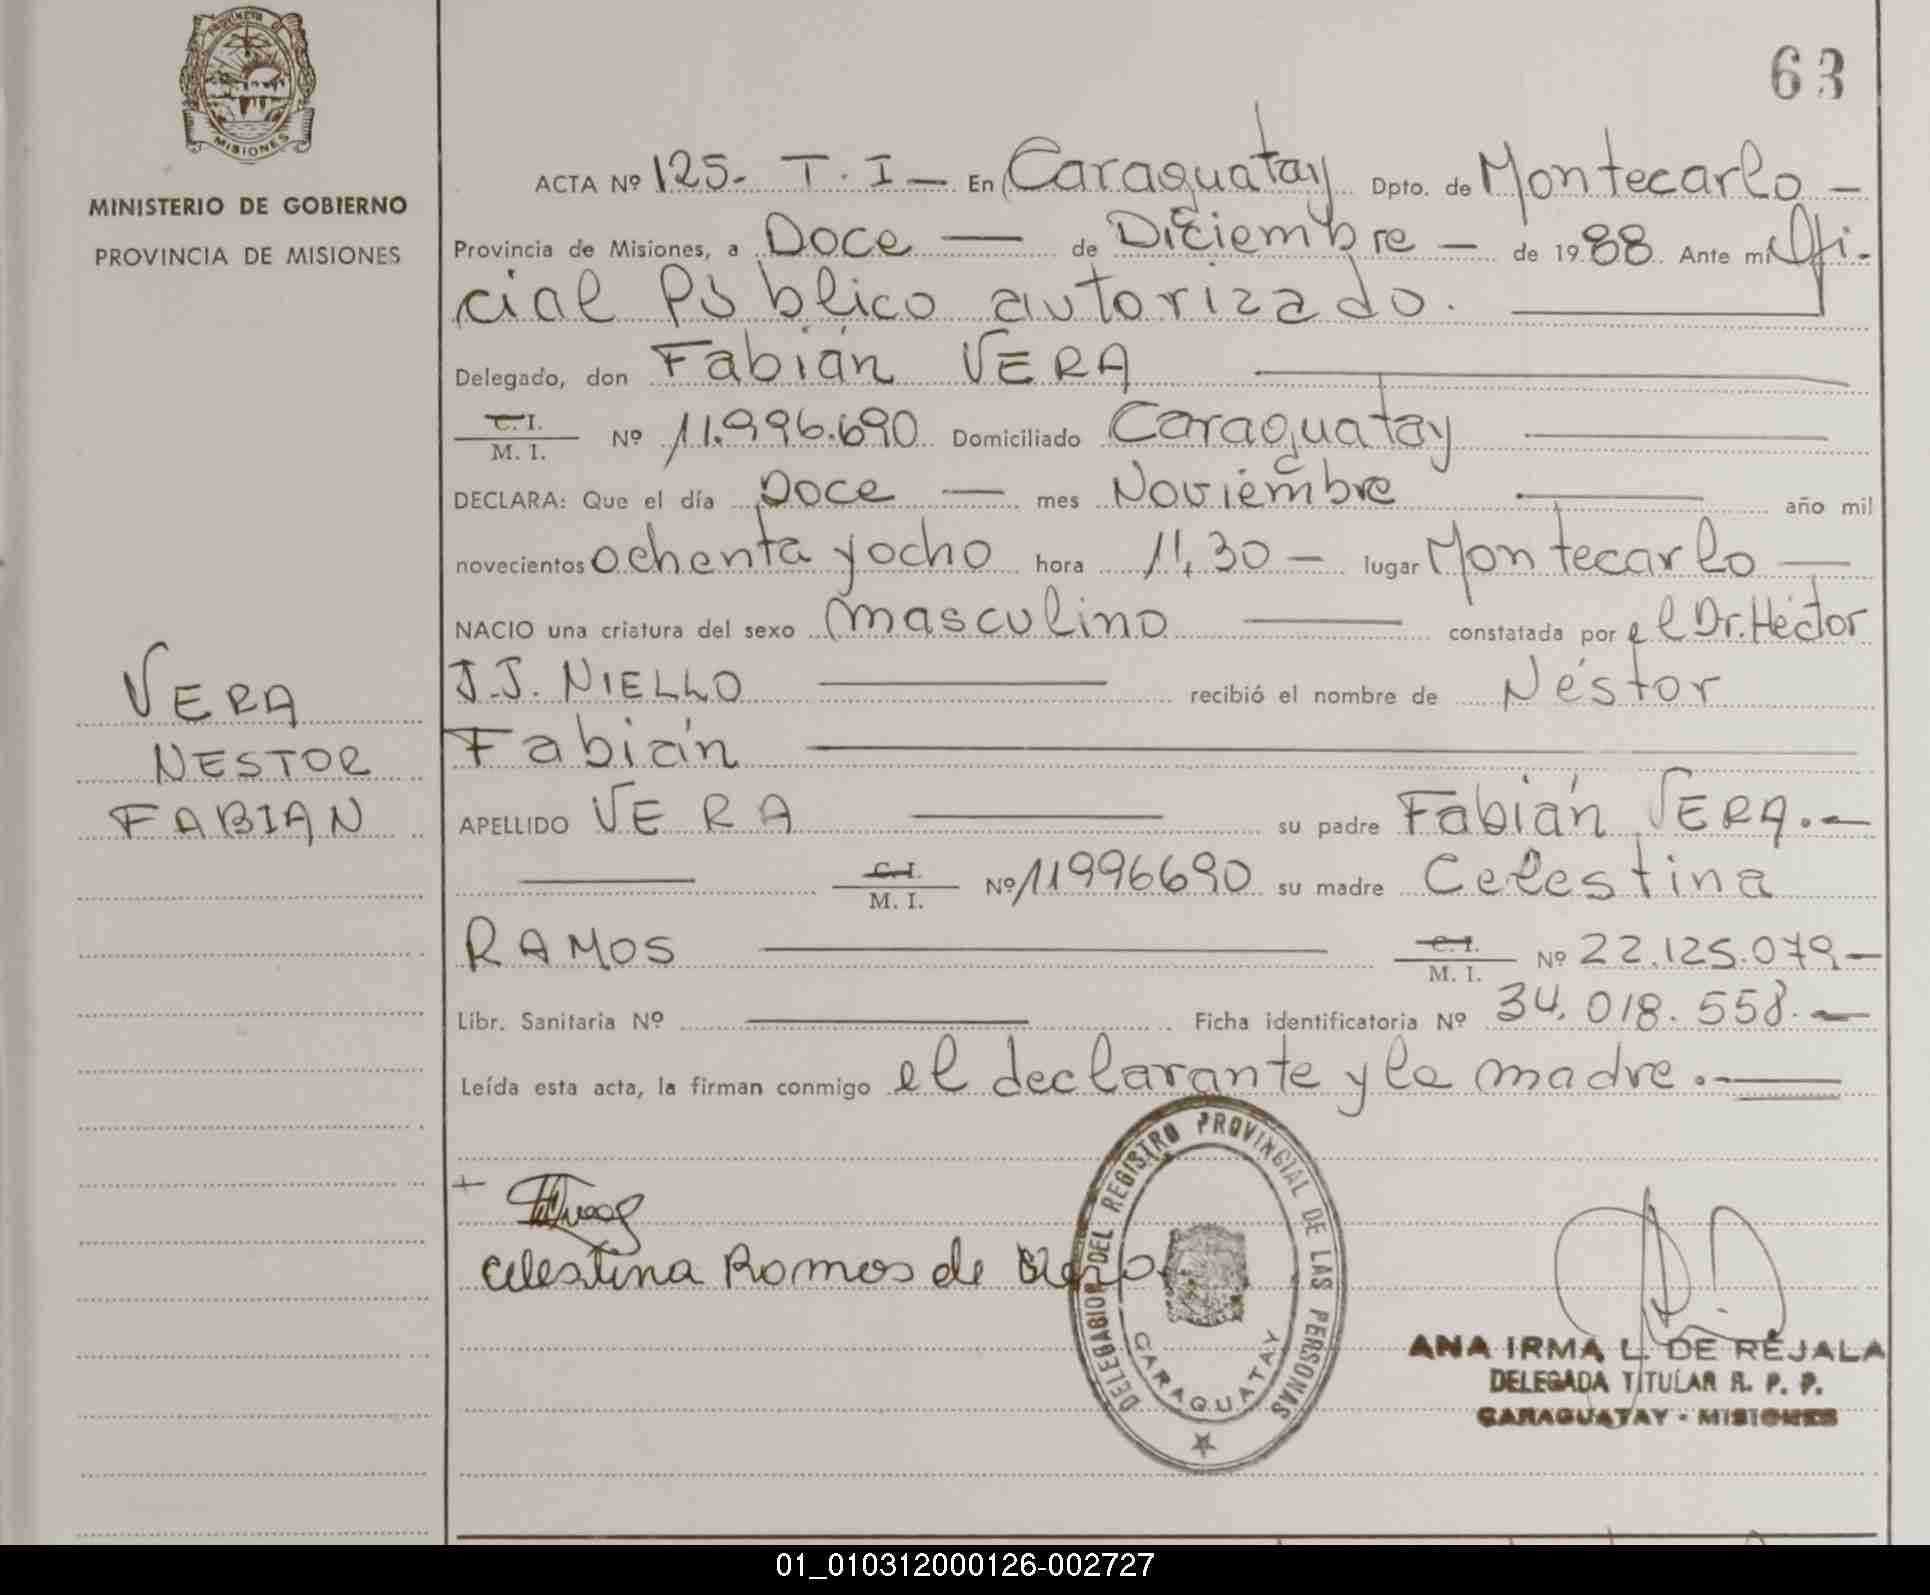 PROVINCIA DE
MISIONES
MINISTERIO DE GOBIERNO
PROVINCIA DE MISIONES
VERA
NESTOR
FABIAN
63
ACTA Nº 125.- T. I — En Caraguatay Dpto. de Montecarlo —
Provincia de Misiones, a Doce — de Diciembre — de 1988. Ante mi Ofi-
cial Público autorizado.
Delegado, don Fabián VERA
C. I. / M. I. Nº 11.996.690 Domiciliado Caraguatay
DECLARA: Que el día Doce — mes Noviembre — año mil
novecientos ochenta y ocho hora 11,30 — lugar Montecarlo —
NACIO una criatura del sexo masculino — constatada por el Dr. Héctor
J.J. NIELLO — recibió el nombre de Néstor
Fabián
APELLIDO VERA — su padre Fabián VERA.—
— C. I. / M. I. Nº 11996690 su madre Celestina
RAMOS — C. I. / M. I. Nº 22.125.079—
Libr. Sanitaria Nº — Ficha identificatoria Nº 34.018.558.—
Leída esta acta, la firman conmigo el declarante y la madre.—
+
Celestina Ramos de
DELEGACION DEL REGISTRO PROVINCIAL DE LAS PERSONAS
CARAGUATAY
ANA IRMA L. DE REJALA
DELEGADA TITULAR R. P. P.
CARAGUATAY - MISIONES
01_010312000126-002727